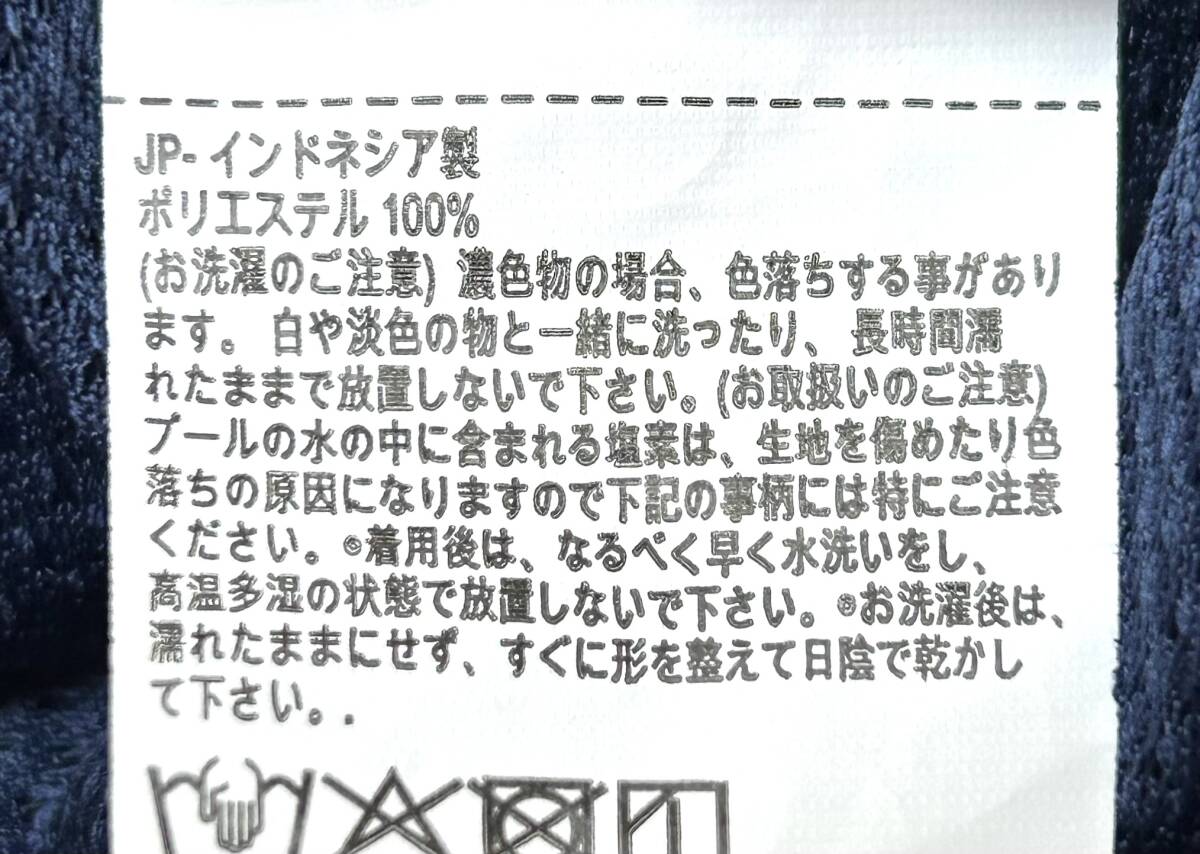 JP-インドネシア製
ポリエステル 100%
(お洗濯のご注意) 濃色物の場合、色落ちする事があり
ます。白や淡色の物と一緒に洗ったり、長時間濡
れたままで放置しないで下さい。(お取扱いのご注意)
プールの水の中に含まれる塩素は、生地を傷めたり色
落ちの原因になりますので下記の事柄には特にご注意
ください。◎着用後は、なるべく早く水洗いをし、
高温多湿の状態で放置しないで下さい。◎お洗濯後は、
濡れたままにせず、すぐに形を整えて日陰で乾かし
て下さい。.